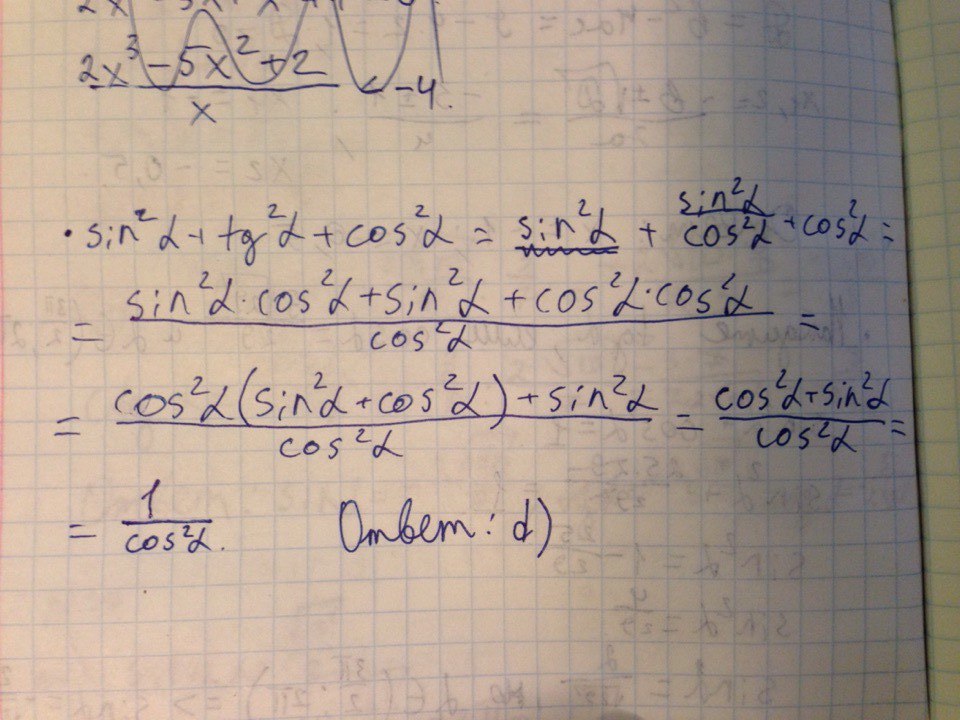 2x³ - 5x² + 2 / x < -4.
• sin²α + tg²α + cos²α = sin²α + sin²α/cos²α + cos²α =
= (sin²α · cos²α + sin²α + cos²α · cos²α) / cos²α =
= (cos²α (sin²α + cos²α) + sin²α) / cos²α = (cos²α + sin²α) / cos²α =
= 1 / cos²α. Ответ: d)